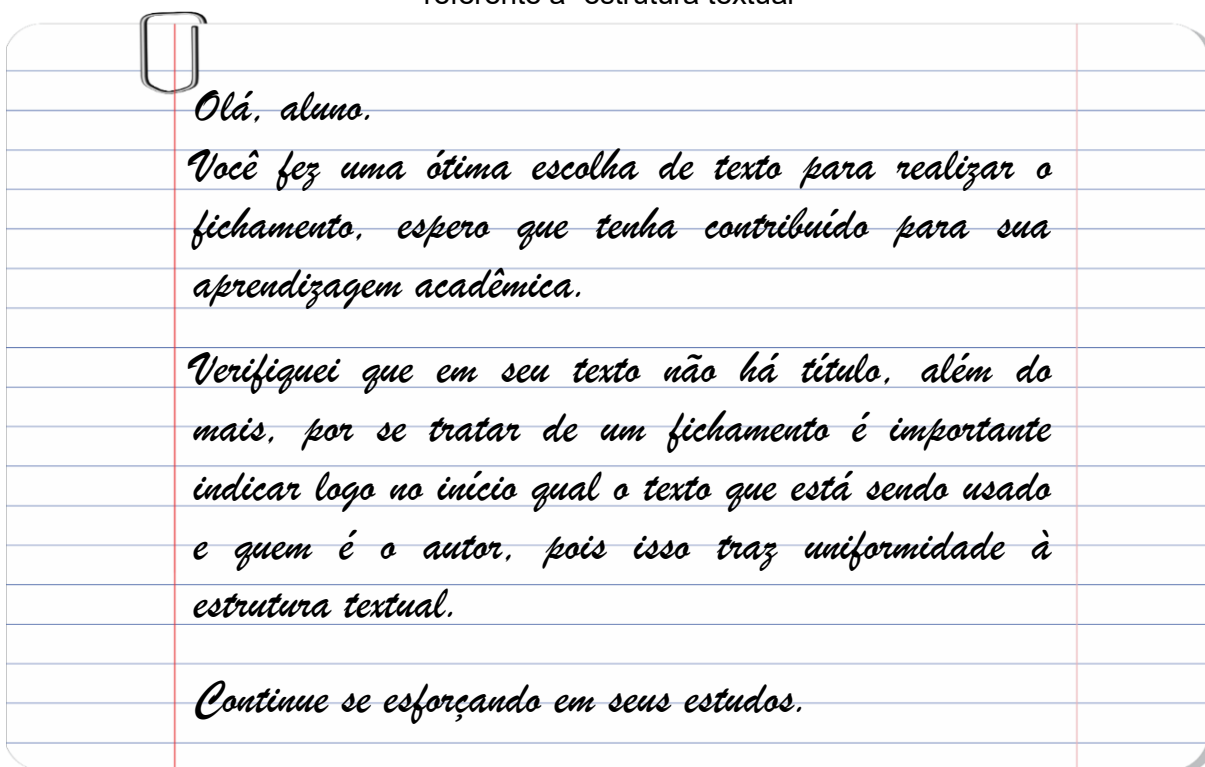 referente à "estrutura textual"
Olá, aluno.
Você fez uma ótima escolha de texto para realizar o
fichamento, espero que tenha contribuído para sua
aprendizagem acadêmica.
Verifiquei que em seu texto não há título, além do
mais, por se tratar de um fichamento é importante
indicar logo no início qual o texto que está sendo usado
e quem é o autor, pois isso traz uniformidade à
estrutura textual.
Continue se esforçando em seus estudos.